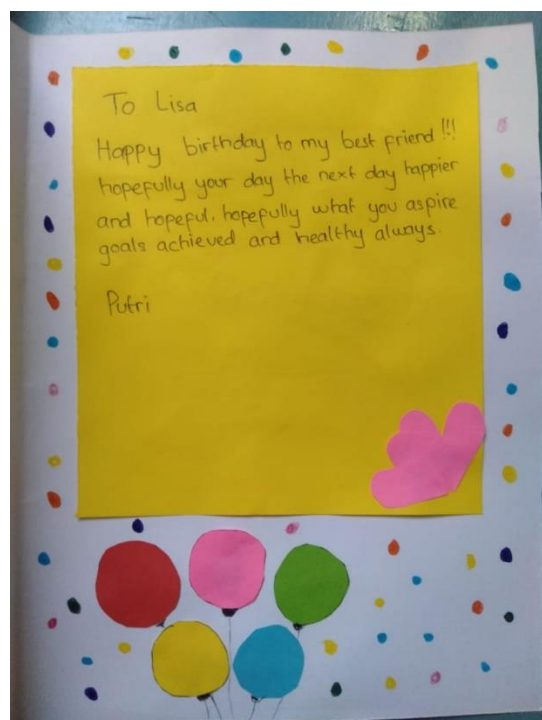 To Lisa
Happy birthday to my best friend !!!
hopefully your day the next day happier
and hopeful. hopefully what you aspire
goals achieved and healthy always.
Putri